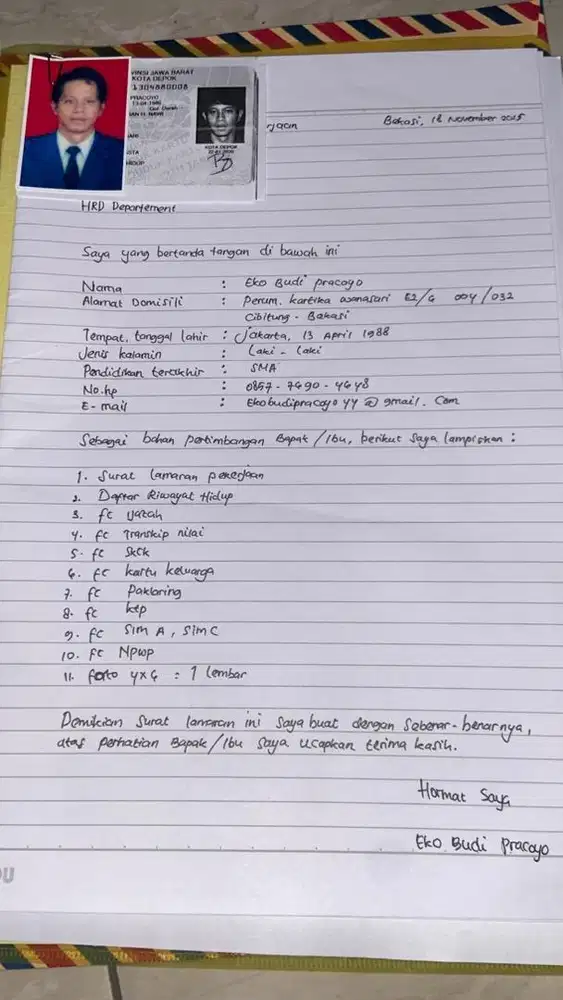 VINSI JAWA BARAT
KOTA DEPOK
1304880008
PRACOYO
KOTA DEPOK
rjaan
Bekasi, 18 November 2025
HRD Departement
Saya yang bertanda tangan di bawah ini
Nama : Eko Budi pracoyo
Alamat Domisili : Perum. kartika wanasari E2/G 004/032
Cibitung - Bekasi
Tempat, tanggal lahir : Jakarta, 13 April 1988
Jenis kalamin : Laki - Laki
Pendidikan terakhir : SMA
No.hp : 0857-7690-4648
E-mail : Ekobudipracoyo44@gmail.com
Sebagai bahan pertimbangan Bapak/Ibu, berikut saya lampirkan :
1. Surat lamaran pekerjaan
2. Daftar Riwayat Hidup
3. fc ijazah
4. fc Transkip nilai
5. fc Skck
6. fc kartu keluarga
7. fc Paklaring
8. fc ktp
9. fc SIM A, SIM C
10. fc NPWP
11. foto 4x6 : 1 lembar
Demikian Surat lamaran ini saya buat dengan sebenar-benarnya,
atas perhatian Bapak/Ibu saya ucapkan terima kasih.
Hormat Saya
Eko Budi pracoyo